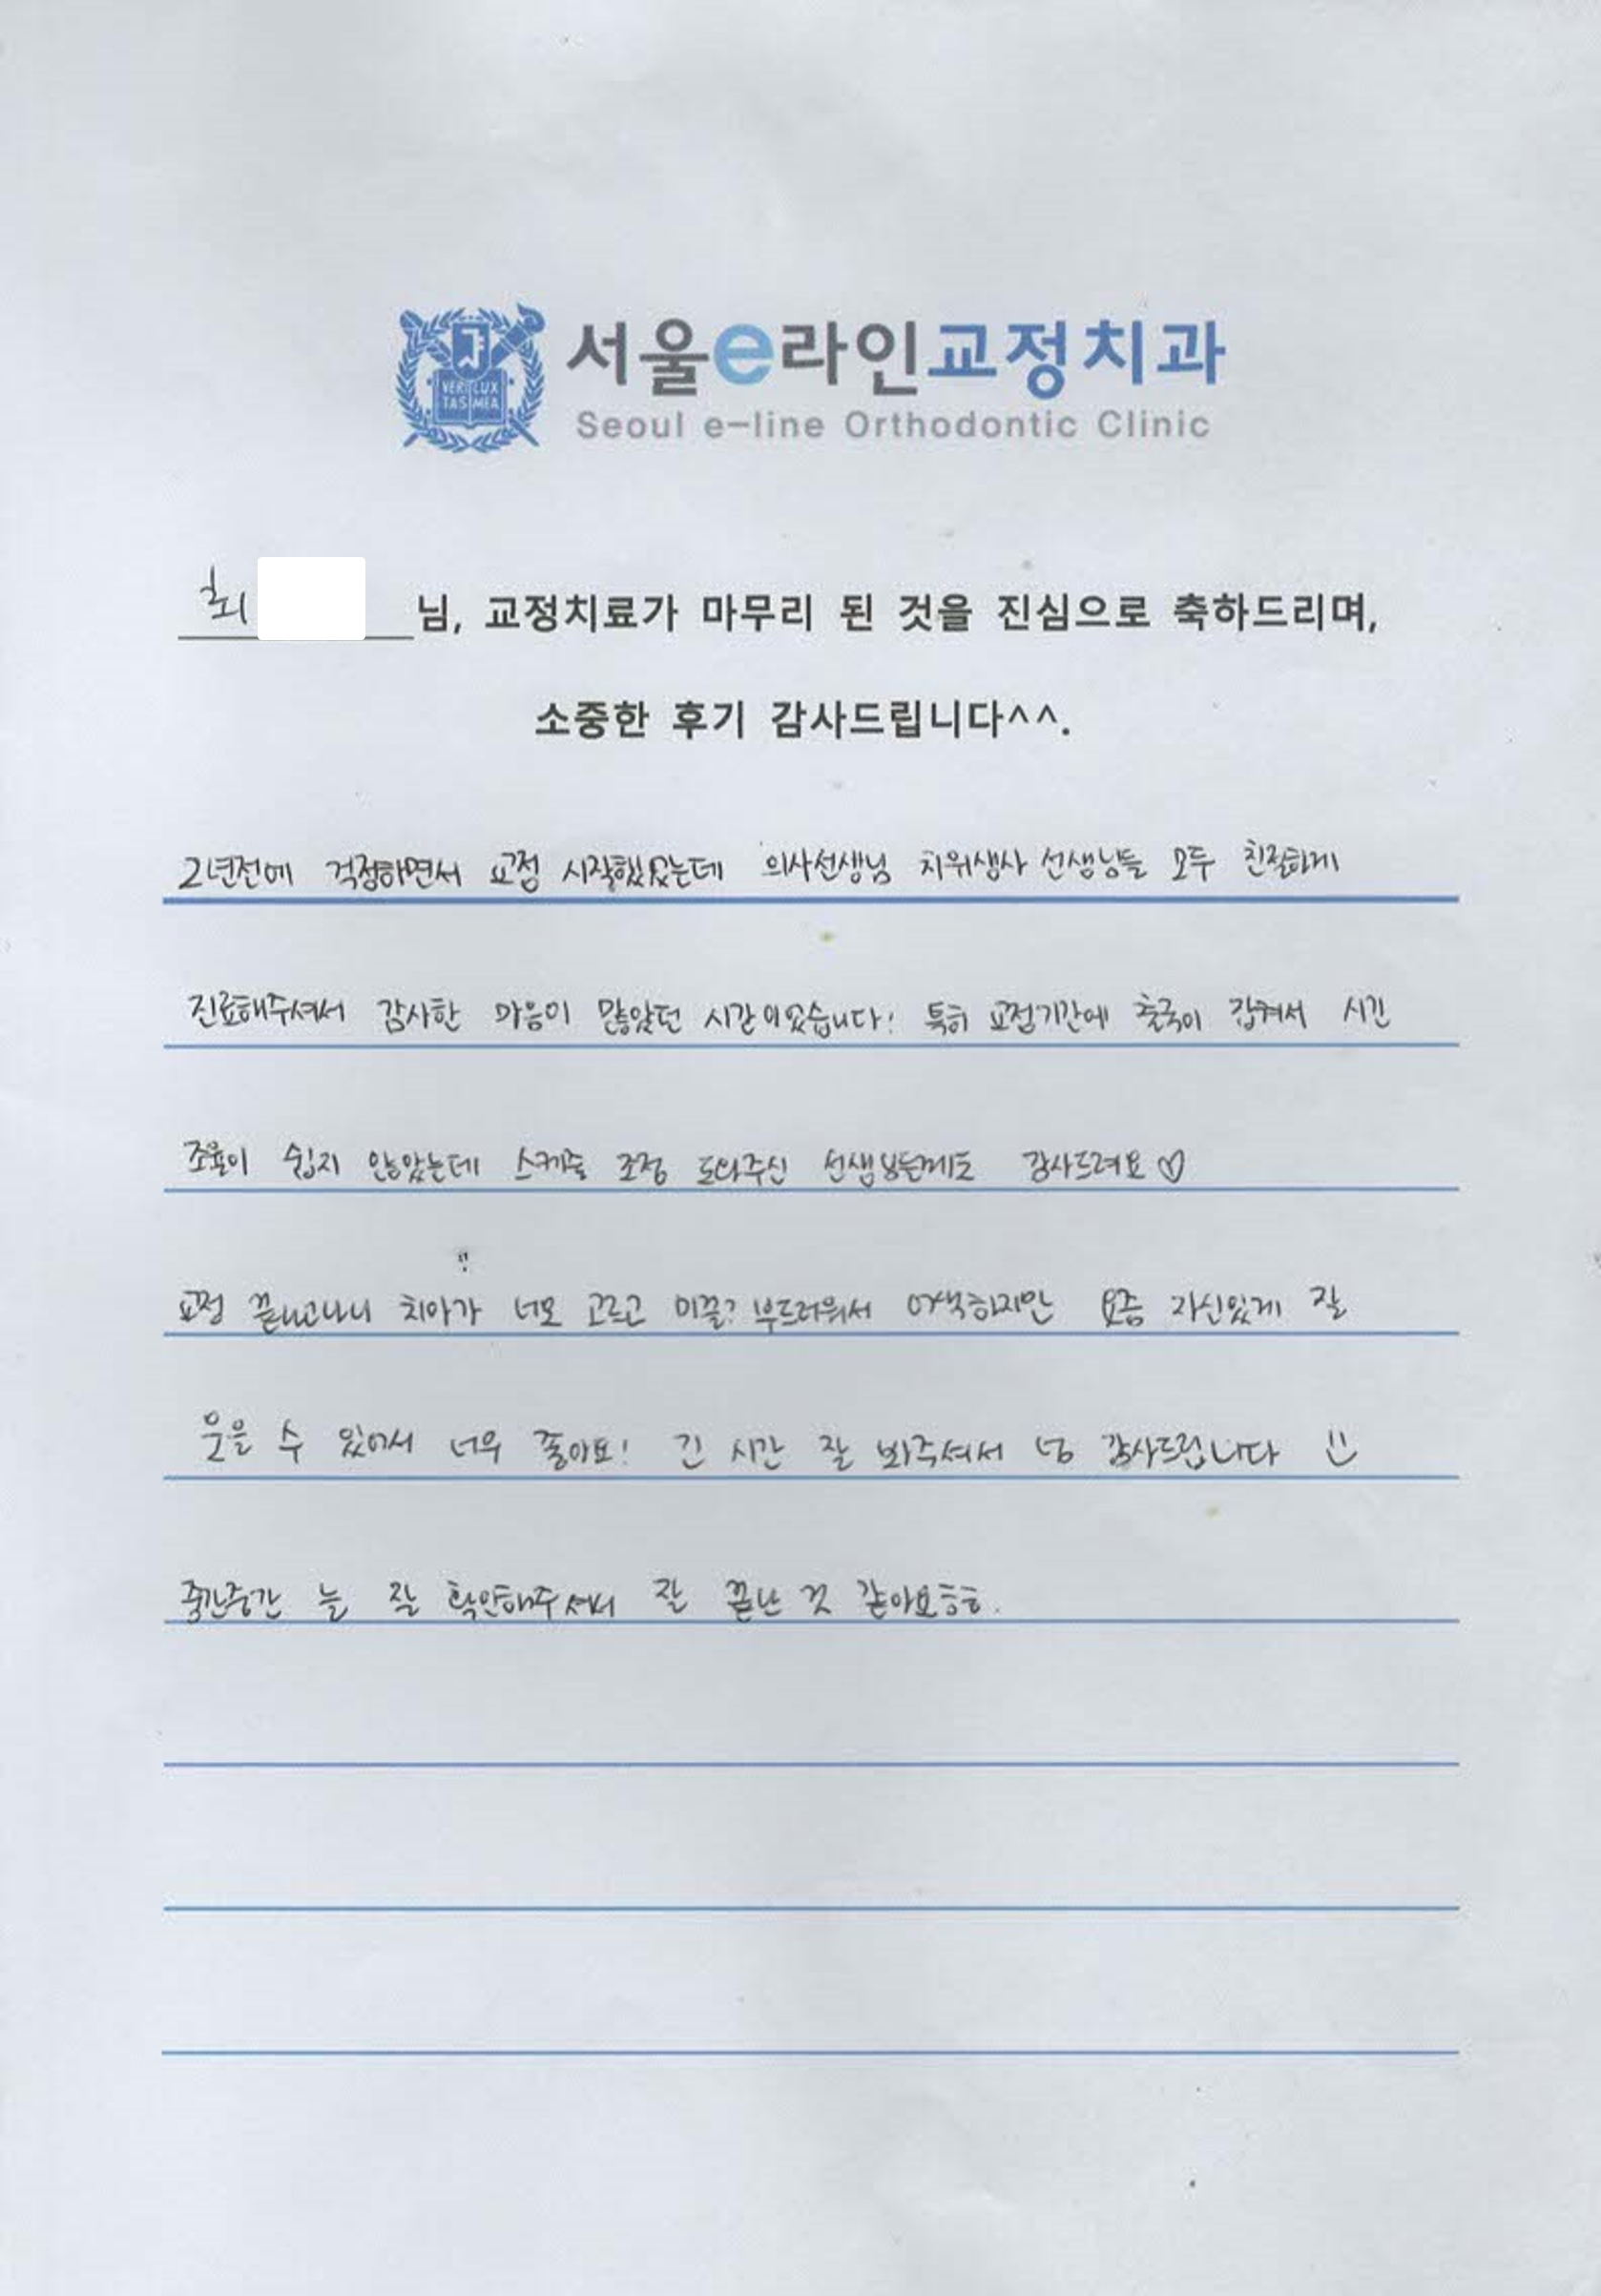 VERI LUX
TAS MEA
서울e라인교정치과
Seoul e-line Orthodontic Clinic
최 님, 교정치료가 마무리 된 것을 진심으로 축하드리며,
소중한 후기 감사드립니다^^.
2년전에 걱정하면서 교정 시작했었는데 의사선생님 치위생사 선생님들 모두 친절하게
진료해주셔서 감사한 마음이 많았던 시간이었습니다! 특히 교정기간에 출국이 잡혀서 시간
조율이 쉽지 않았는데 스케줄 조정 도와주신 선생님들께도 감사드려요♡
교정 끝나고나니 치아가 너무 고르고 미끌? 부드러워서 어색하지만 요즘 자신있게 잘
웃을 수 있어서 너무 좋아요! 긴 시간 잘 봐주셔서 넘 감사드립니다 :)
중간중간 늘 잘 확인해주셔서 잘 끝난 것 같아요ㅎㅎ.